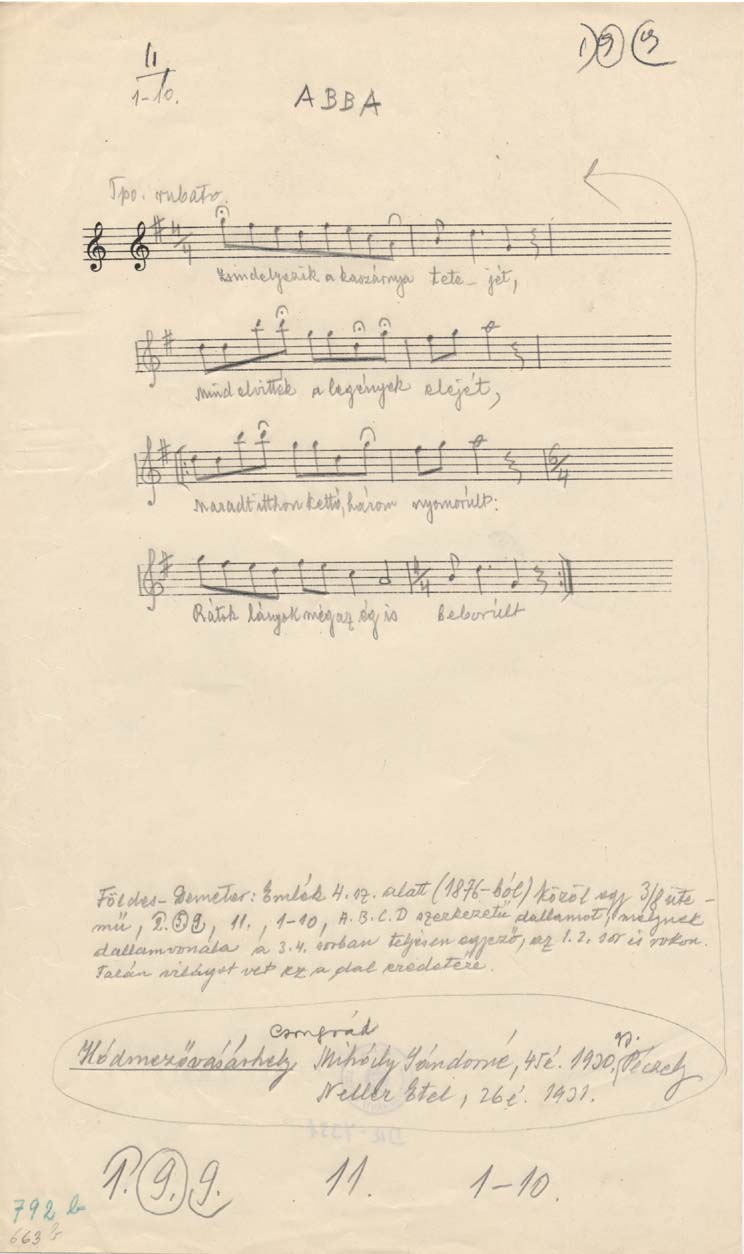 11
1-10.
ABBA
Tpo. rubato.
4/4
Zsindelyezik a kaszárnya tete-jét,
Mind elvitték a legények elejét,
6/4
Maradt itthon kettő, három nyomorúlt:
4/4
Rátok lányok még az ég is beborúlt
Földes-Demeter: Emlék 4. sz. alatt (1876-ból) közöl egy 3/8 üte-
mű, 1. 5 9, 11., 1-10, A.B.C.D szerkezetű dallamot, melynek
dallamvonala a 3.4. sorban teljesen egyező, az 1.2. sor is rokon.
Talán világot vet ez a dal eredetére.
Csongrád
Hódmezővásárhely Mihály Sándorné, 45é. 1930, gy. Péczely
Neller Etel, 26é. 1931.
1. 9. 9. 11. 1-10.
792 b
663 b